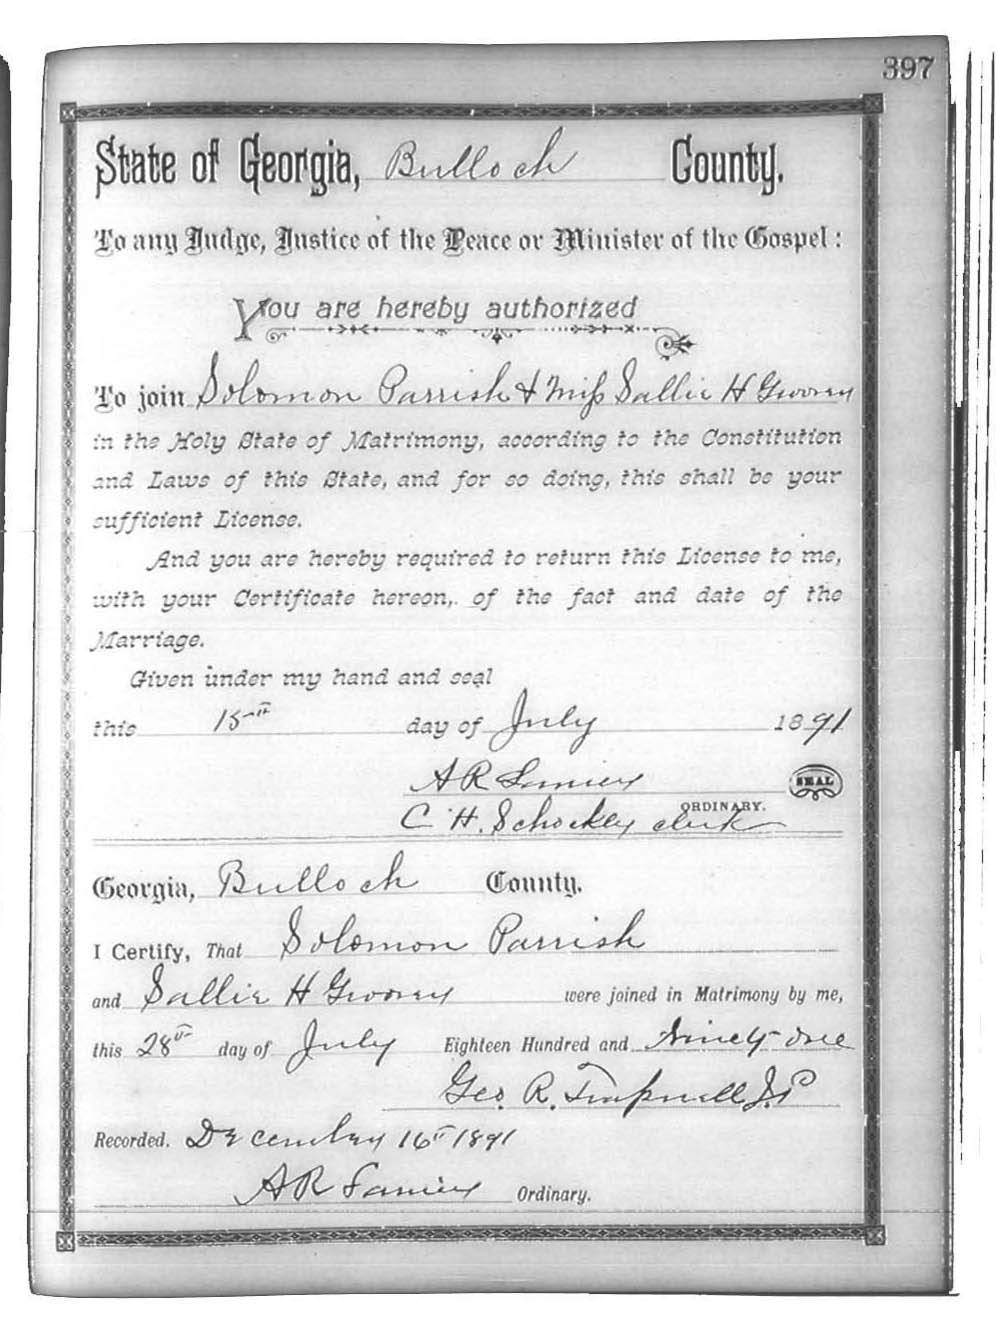 397
State of Georgia, Bulloch County.
To any Judge, Justice of the Peace or Minister of the Gospel:
You are hereby authorized
To join Solomon Parrish & Miss Sallie H
in the Holy State of Matrimony, according to the Constitution
and Laws of this State, and for so doing, this shall be your
sufficient License.
And you are hereby required to return this License to me,
with your Certificate hereon, of the fact and date of the
Marriage.
Given under my hand and seal
this day of July 1891
A R Lanier SEAL
ORDINARY.
C. H. Schockley clerk
Georgia, Bulloch County.
I Certify, That Solomon Parrish
and Sallie H were joined in Matrimony by me,
this 28th day of July Eighteen Hundred and Ninety one
Geo. R. Trapnell J.P
Recorded. December 16th 1891
A R Lanier Ordinary.